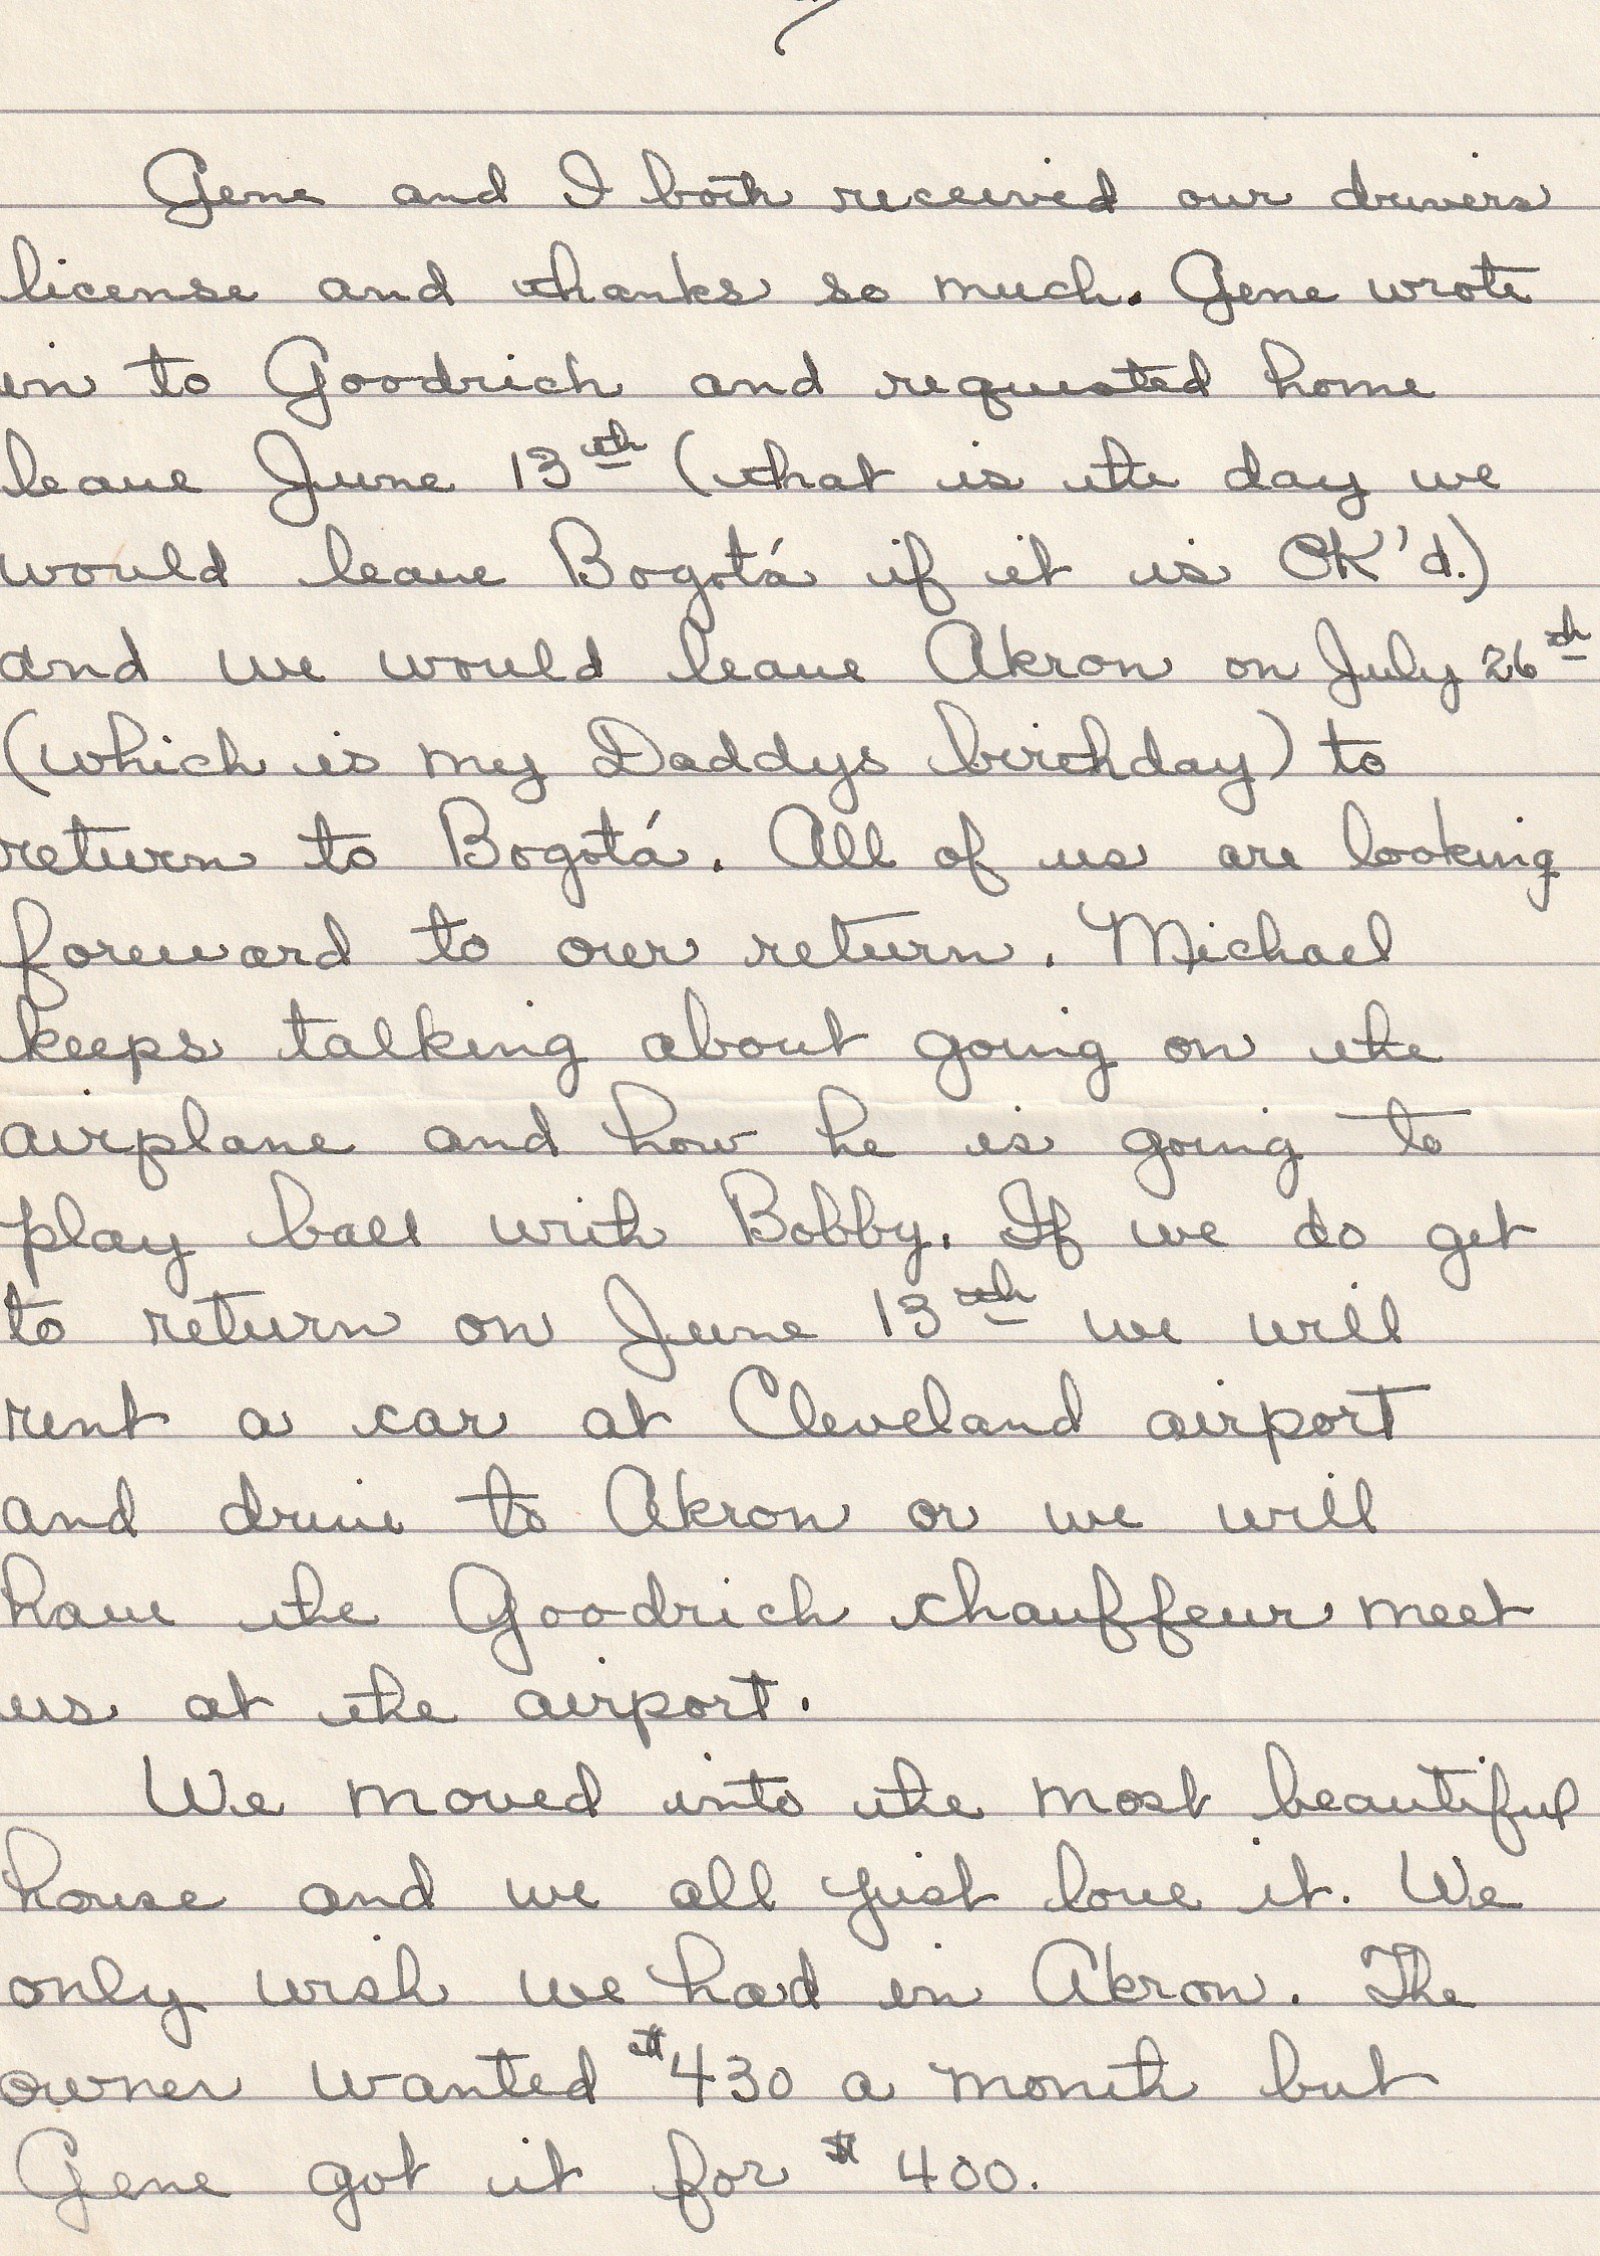 Gene and I both received our drivers
license and thanks so much. Gene wrote
in to Goodrich and requested home
leave June 13th (that is the day we
would leave Bogotá if it is OK'd.)
and we would leave Akron on July 26th
(which is my Daddys birthday) to
return to Bogotá. All of us are looking
foreward to our return. Michael
keeps talking about going on the
airplane and how he is going to
play ball with Bobby. If we do get
to return on June 13th we will
rent a car at Cleveland airport
and drive to Akron or we will
have the Goodrich chauffeur meet
us at the airport.
We moved into the most beautiful
house and we all just love it. We
only wish we had in Akron. The
owner wanted $430 a month but
Gene got it for $400.